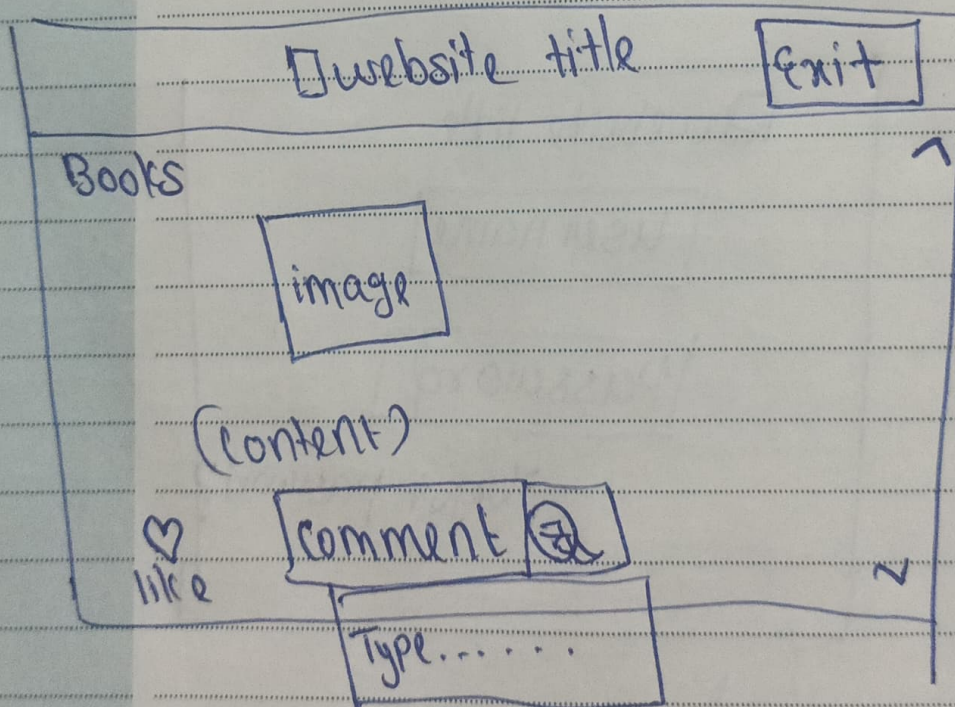 website title Exit
Books
image
(content)
comment
like
Type......